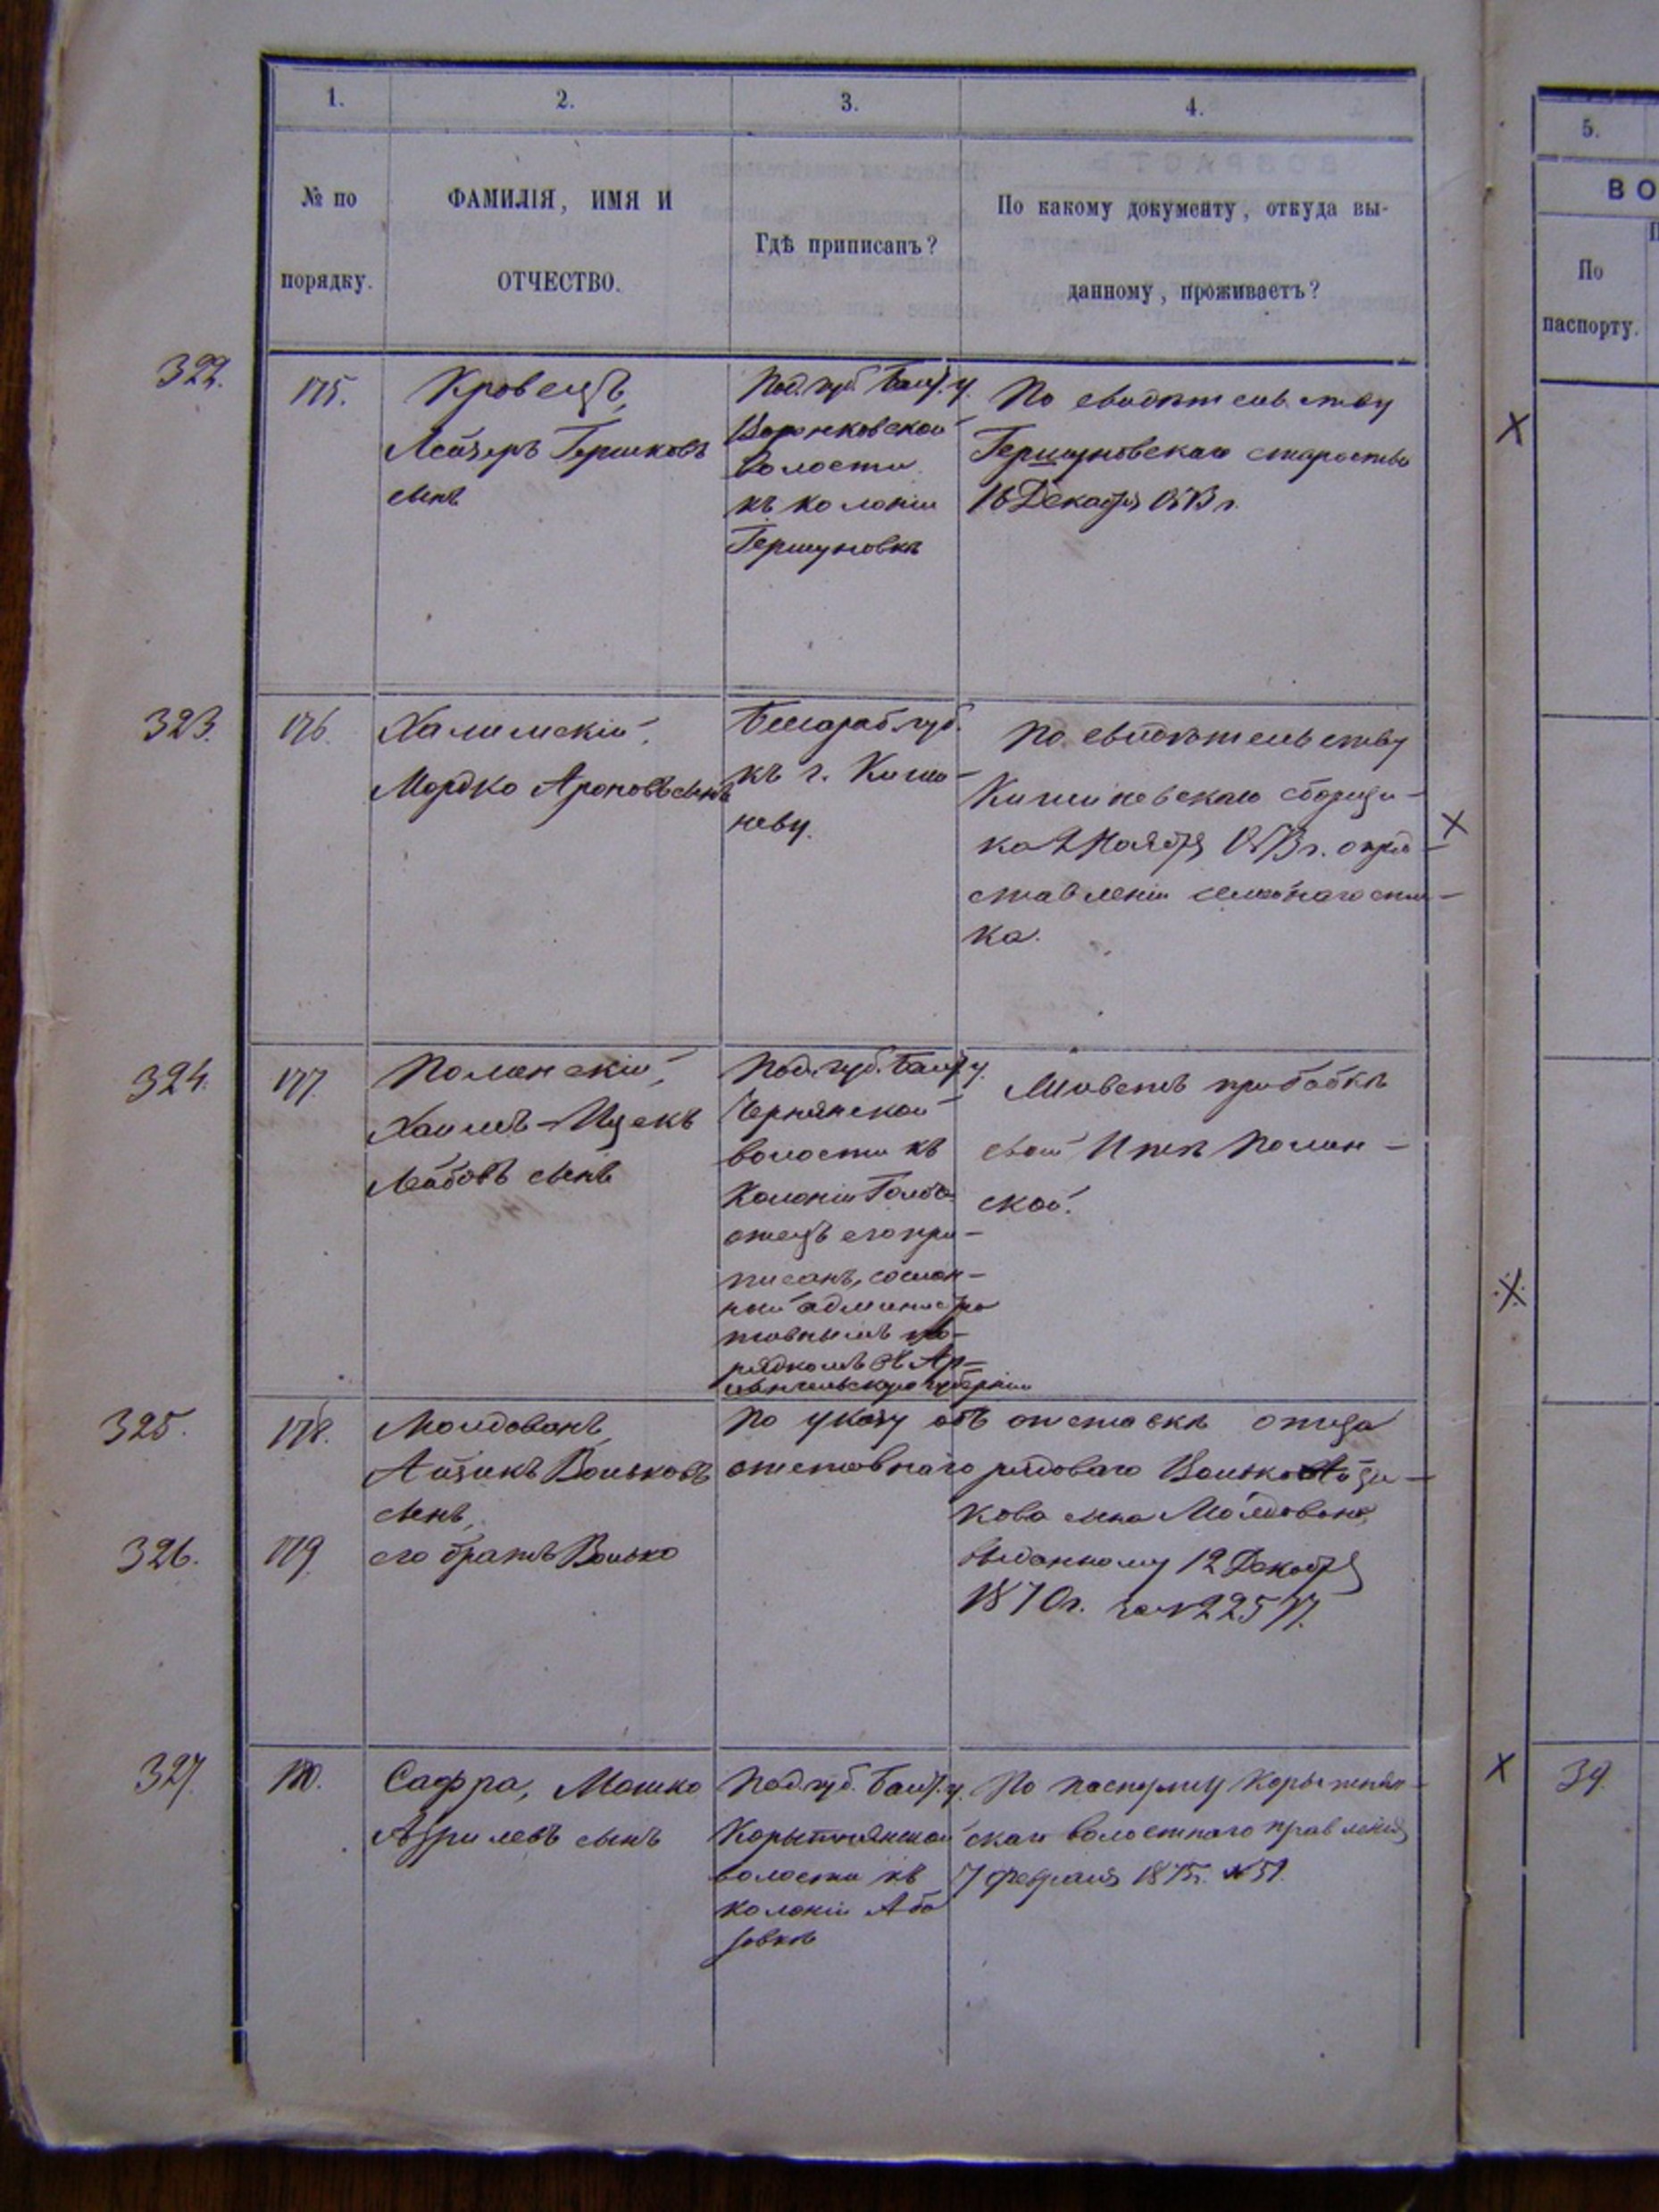 1.
2.
3.
4.
5.
№ по
порядку.
ФАМИЛІЯ, ИМЯ И
ОТЧЕСТВО.
Гдѣ приписанъ?
По какому документу, откуда вы-
данному, проживаетъ?
ВО
По
паспорту.
322.
175.
Кровецъ,
Лейзеръ Гершковъ
сынъ
Под. губ. Балт. у.
Воронковской
волости
къ колоніи
Гершуновкѣ
По свидѣтельству
Гершуновскаго староства
16 Декабря 1873 г.
323.
176.
Халимскій,
Мордко Ароновъ сынъ
Бессараб. губ.
къ г. Киши-
неву.
По свидѣтельству
Кишиневскаго сборщи-
ка 2 Ноября 1873 г. о пред-
ставленіи семейнаго спис-
ка.
324.
177.
Полянскій,
Хаимъ-Ицекъ
Лейбовъ сынъ
Под. губ. Балт. у.
Чернянской
волости къ
колоніи
отецъ его при-
писанъ, сослан-
ный администра
тивнымъ по-
рядкомъ въ Ар-
хангельскую губернію
Живетъ при бабкѣ
своей Полян-
ской.
325.
178.
Молдованъ,
Айзикъ Вольковъ
сынъ,
По указу объ отставкѣ отца
отставнаго рядоваго Волька Айзи-
кова сына Молдована,
выданному 12 Декабря
1870 г. за № 22577.
326.
179.
его братъ Волько
327.
180.
Сафра, Мошко
Азрилевъ сынъ
Под. губ. Балт. у.
Корытнянской
волости къ
колоніи Аба
зовкѣ
По паспорту Корытнян-
скаго волостнаго правленія
7 февраля 1875 г. № 51.
39.